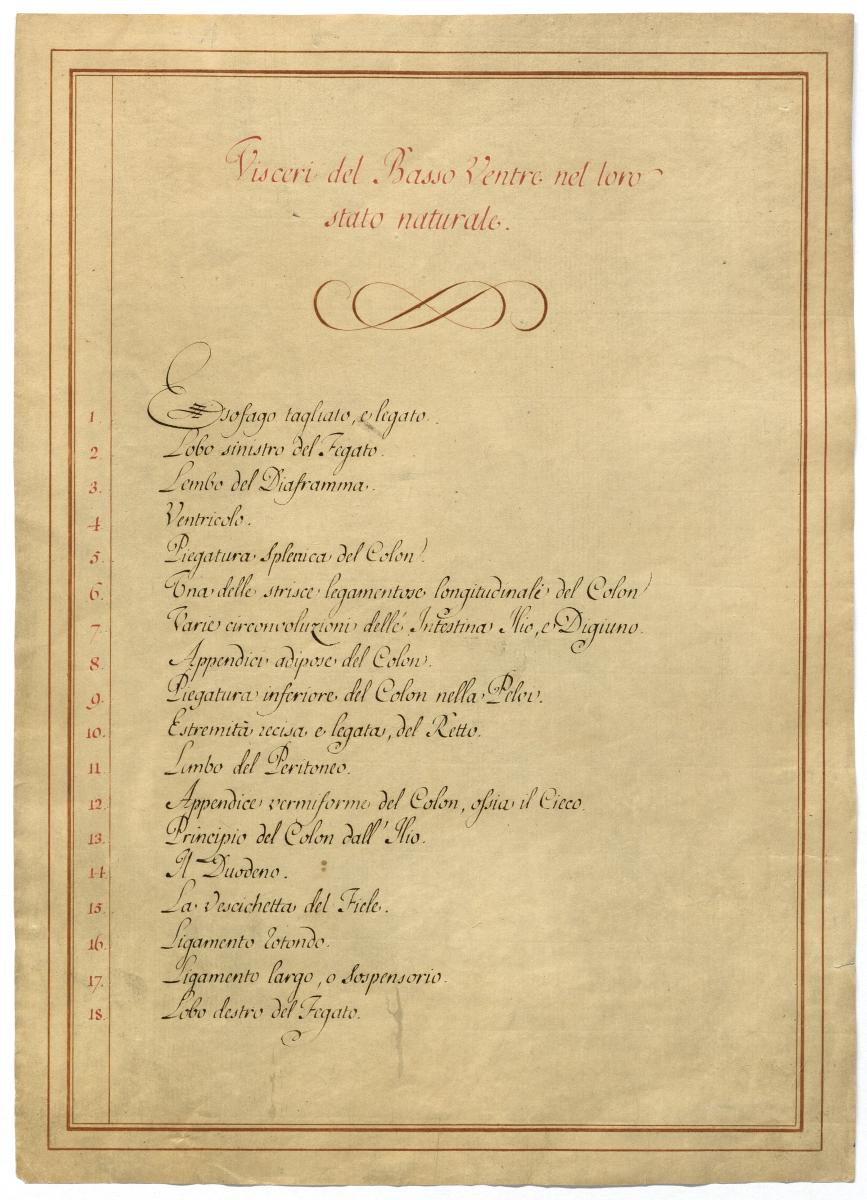 Visceri del Basso Ventre nel loro
stato naturale.
1. Esofago tagliato, e legato.
2. Lobo sinistro del Fegato.
3. Lembo del Diaframma.
4. Ventricolo.
5. Piegatura Splenica del Colon.
6. Una delle strisce legamentose longitudinali del Colon
7. Varie circonvoluzioni delle Intestina Ilio, e Digiuno.
8. Appendici adipose del Colon.
9. Piegatura inferiore del Colon nella Pelvi.
10. Estremità recisa e legata, del Retto.
11. Limbo del Peritoneo.
12. Appendice vermiforme del Colon, ossia il Cieco.
13. Principio del Colon dall' Ilio.
14. Il Duodeno.
15. La Vescichetta del Fiele.
16. Ligamento rotondo.
17. Ligamento largo, o Sospensorio.
18. Lobo destro del Fegato.